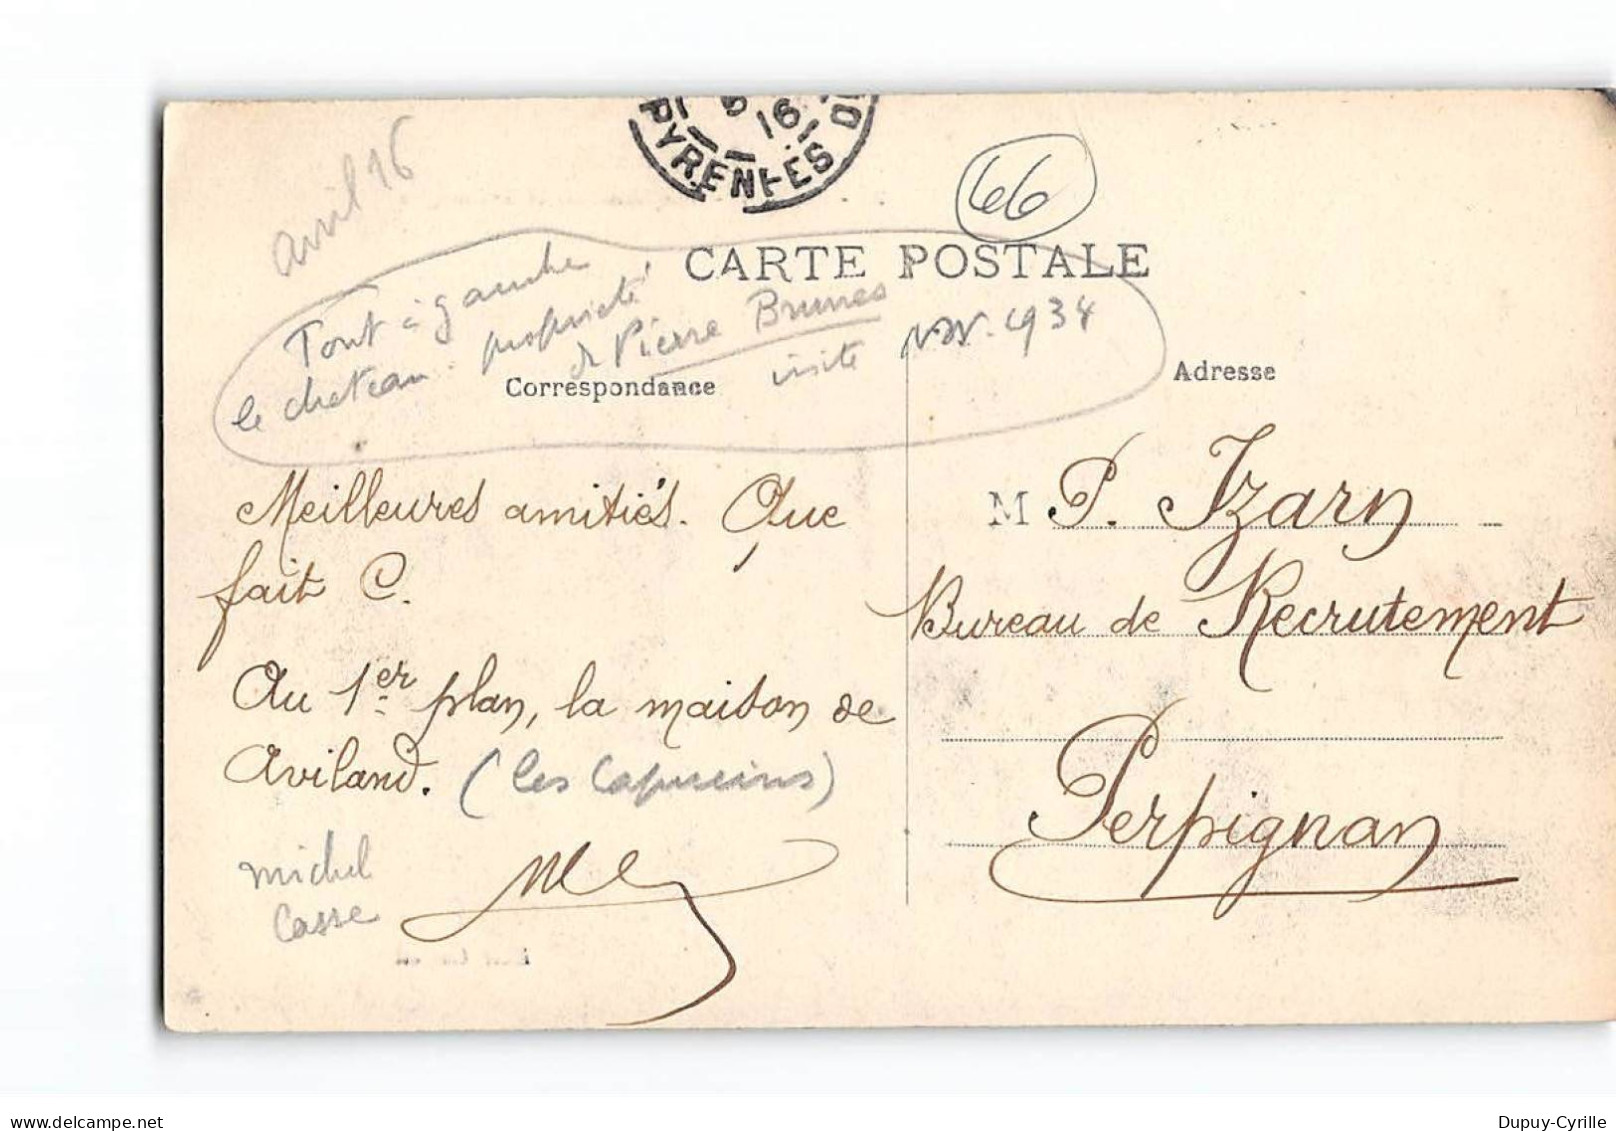 PYRENEES
16
avril 16
66
CARTE POSTALE
Tout à gauche
le chateau. propriété
de Pierre Brunes
visite nov. 1934
Correspondance
Adresse
Meilleures amitiés. Que
fait C.
Au 1er plan, la maison de
Aviland. (les Capucins)
michel
Casse
M P. Izarn
Bureau de Recrutement
Perpignan
www.delcampe.net
Dupuy-Cyrille